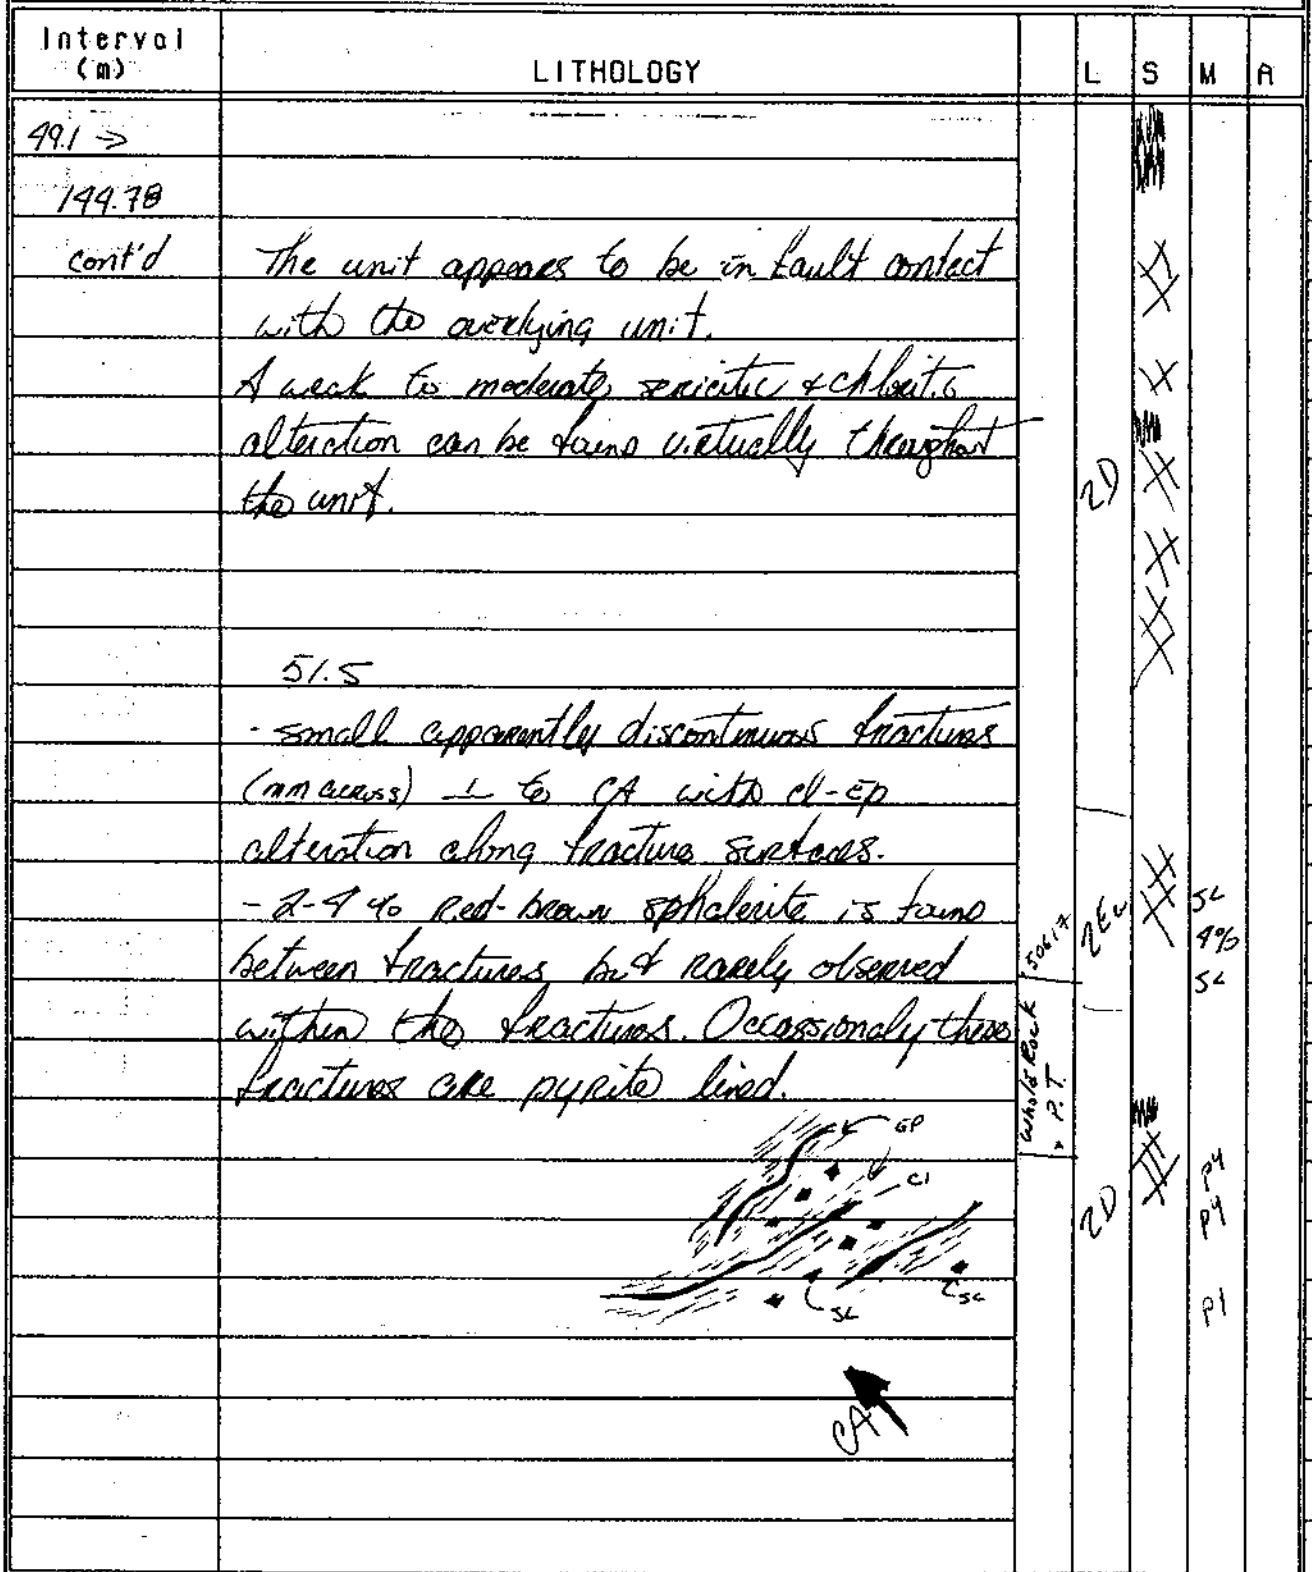 Interval
(m)
LITHOLOGY
L S M A
49.1 →
144.78
cont'd
The unit appears to be in fault contact
with the overlying unit.
A weak to moderate sericitic & chloritic
alteration can be found virtually throughout
the unit.
2D
51.5
- small apparently discontinuous fractures
(mm across) ⊥ to CA with cl-ep
alteration along fracture surfaces.
- 2-4% red-brown sphalerite is found
between fractures but rarely observed
within the fractures. Occassionaly these
fractures are pyrite lined.
50617
2E
SL
4%
SL
Whole Rock
P.T.
EP
Cl
SL
SL
CA
2D
py
py
py